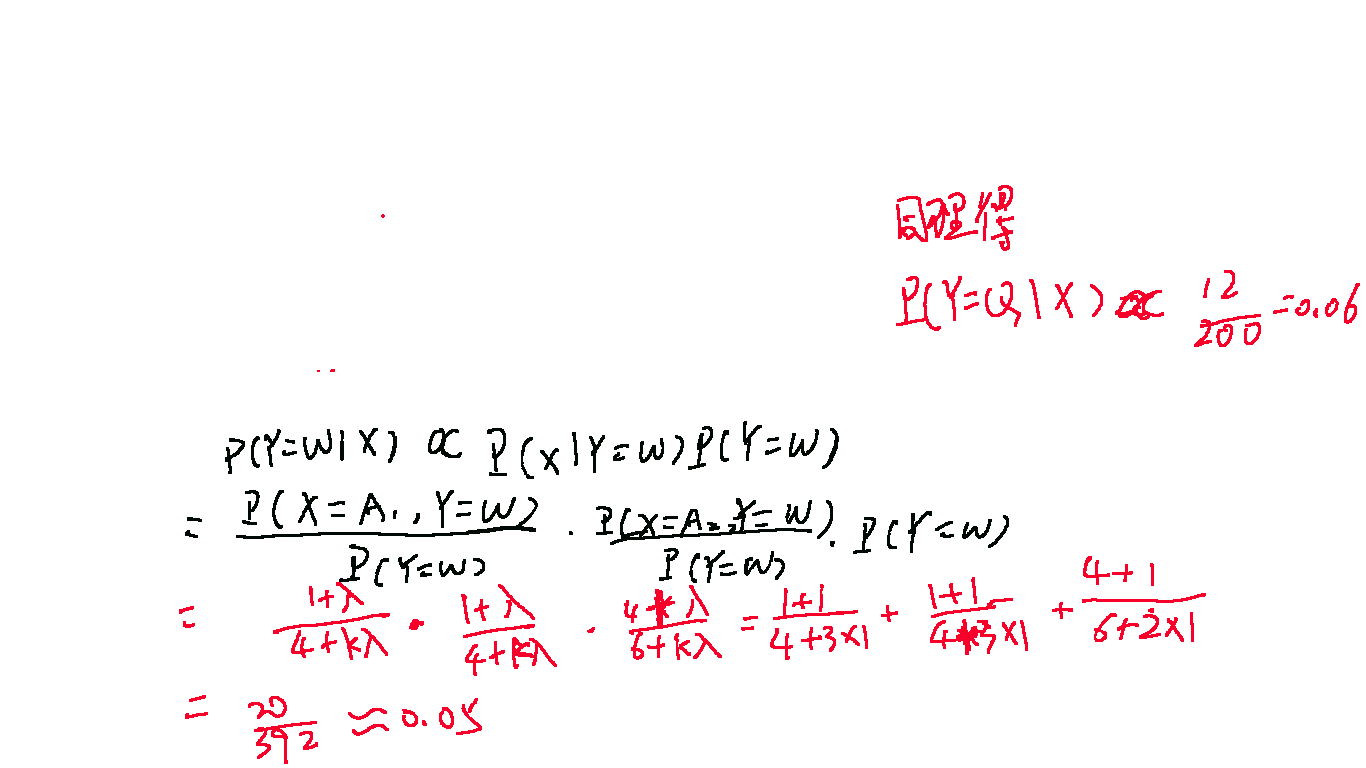 同理得
P(Y=Q|X) ∝ 12/200 = 0.06
P(Y=W|X) ∝ P(X|Y=W)P(Y=W)
= P(X=A₁,Y=W)/P(Y=W) · P(X=A₂,Y=W)/P(Y=W) · P(Y=W)
= (1+λ)/(4+kλ) · (1+λ)/(4+kλ) · (4+λ)/(6+kλ) = (1+1)/(4+3×1) + (1+1)/(4+3×1) + (4+1)/(6+2×1)
= 20/392 ≈ 0.05